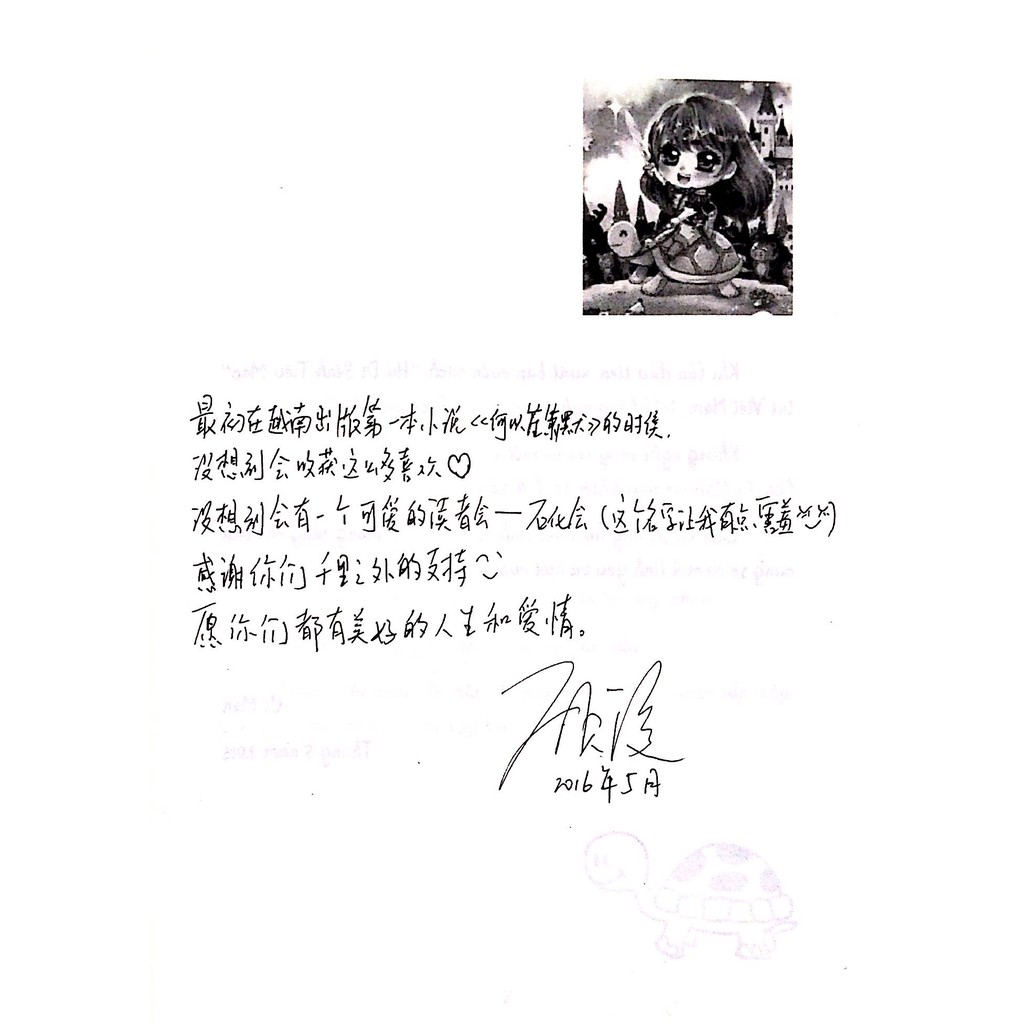 最初在越南出版第一本小说《何以笙箫默》的时候,
没想到会收获这么多喜欢♡
没想到会有一个可爱的读者会——石化会(这个名字让我有点害羞)
感谢你们千里之外的支持
愿你们都有美好的人生和爱情。
顾漫
2016年5月